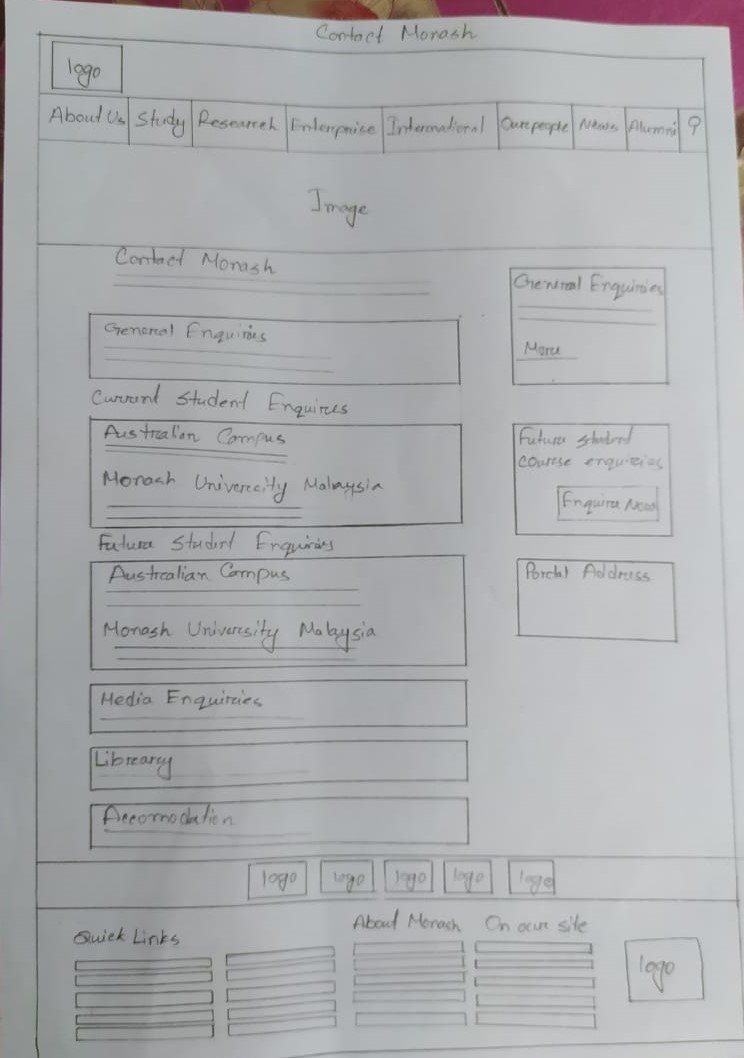 Contact Monash
logo
About Us Study Research Enterprise International Our people News Alumni ?
Image
Contact Monash
General Enquiries
Current Student Enquires
Australian Campus
Monash University Malaysia
Future Student Enquiries
Australian Campus
Monash University Malaysia
Media Enquiries
Library
Accomodation
General Enquiries
More
Future student
course enquiries
Enquire Now
Portal Address
logo logo logo logo logo
Quick Links
About Monash
On our site
logo